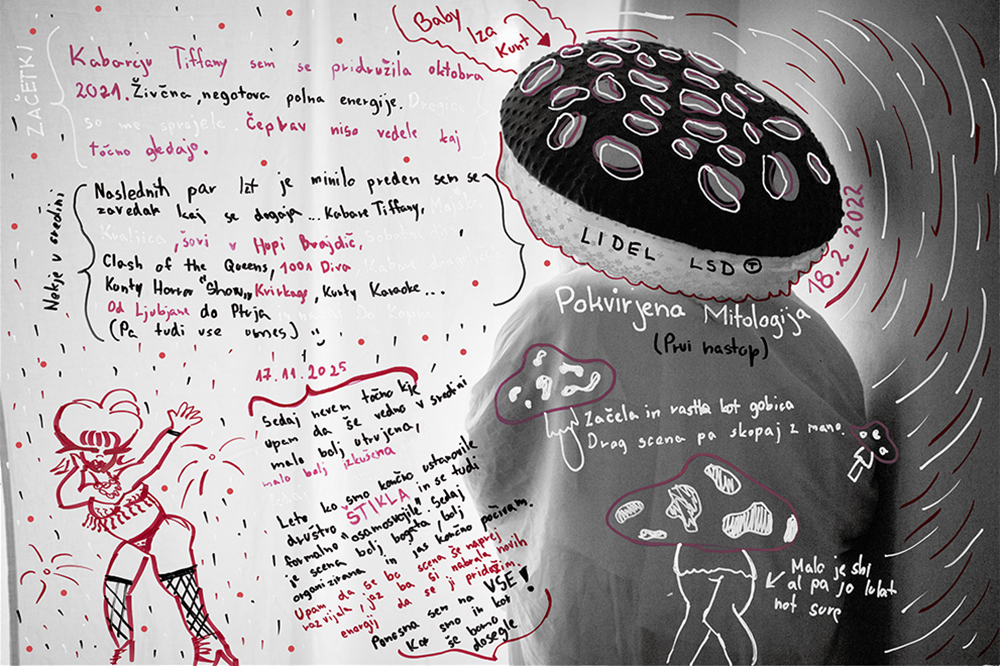 ZAČETKI
Kabareju Tiffany sem se pridružila oktobra
2021. Živčna, negotova polna energije. Dragice
so me sprejele. Čeprav niso vedele kaj
točno gledajo.
Nekje v sredini
Naslednih par let je minilo preden sem se
zavedak kaj se dogaja... Kabare Tiffany,
Kraljica, šovi v Hupi Brajdič,
Clash of the Queens, 1001 Diva
Kunty Horror "Show", Kvirkage, Kunty Karaoke...
Od Ljubjane do Ptuja
(Pa tudi vse vmes)
17.11.2025
Sedaj nevem točno kje
upam da še vedno v sredini
malo bolj utrujena,
malo bolj izkušena
Leto ko smo končno ustanovile
društvo ŠTIKLA in se tudi
formalno "osamosvojile". Sedaj
je scena bolj bogata, bolj
organizirana in jas končno počivam.
Upam da se bo scena še naprej
razvijala, jaz ba si nabrala novih
energij da se ji pridružim.
Ponosna sem na VSE!
Kar smo in kot
še bomo dosegle
Baby Iza Kunt
LIDEL LSD T
18.2.2022
Pokvirjena Mitologija
(Prvi nastop)
Začela in rastla kot gobica
Drag scena pa skopaj z mano.
Malo je sbl
al pa jo lulat
not sure